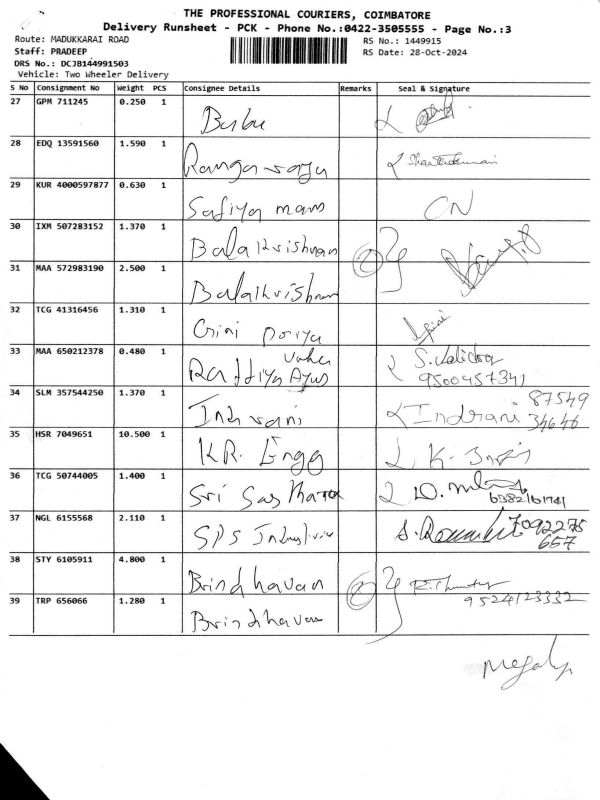 THE PROFESSIONAL COURIERS, COIMBATORE
Delivery Runsheet - PCK - Phone No.:0422-3505555 - Page No.:3
Route: MADUKKARAI ROAD
RS No.: 1449915
Staff: PRADEEP
RS Date: 28-Oct-2024
DRS No.: DCJB144991503
Vehicle: Two Wheeler Delivery
S No Consignment No Weight PCS Consignee Details Remarks Seal & Signature
27 GPM 711245 0.250 1 Babu
28 EDQ 13591560 1.590 1
29 KUR 4000597877 0.630 1 Safiya mam ON
30 IXM 507283152 1.370 1 Balakrishnan 2
31 MAA 572983190 2.500 1 Balakrishnan
32 TCG 41316456 1.310 1 Priya
33 MAA 650212378 0.480 1
9500457341
34 SLM 357544250 1.370 1 Indrani Indrani 87549
34646
35 HSR 7049651 10.500 1 KR. Engg
36 TCG 50744005 1.400 1 Sri
37 NGL 6155568 2.110 1 SPS 7092275
657
38 STY 6105911 4.800 1 Brindhavan 2
9524123332
39 TRP 656066 1.280 1 Brindhavan